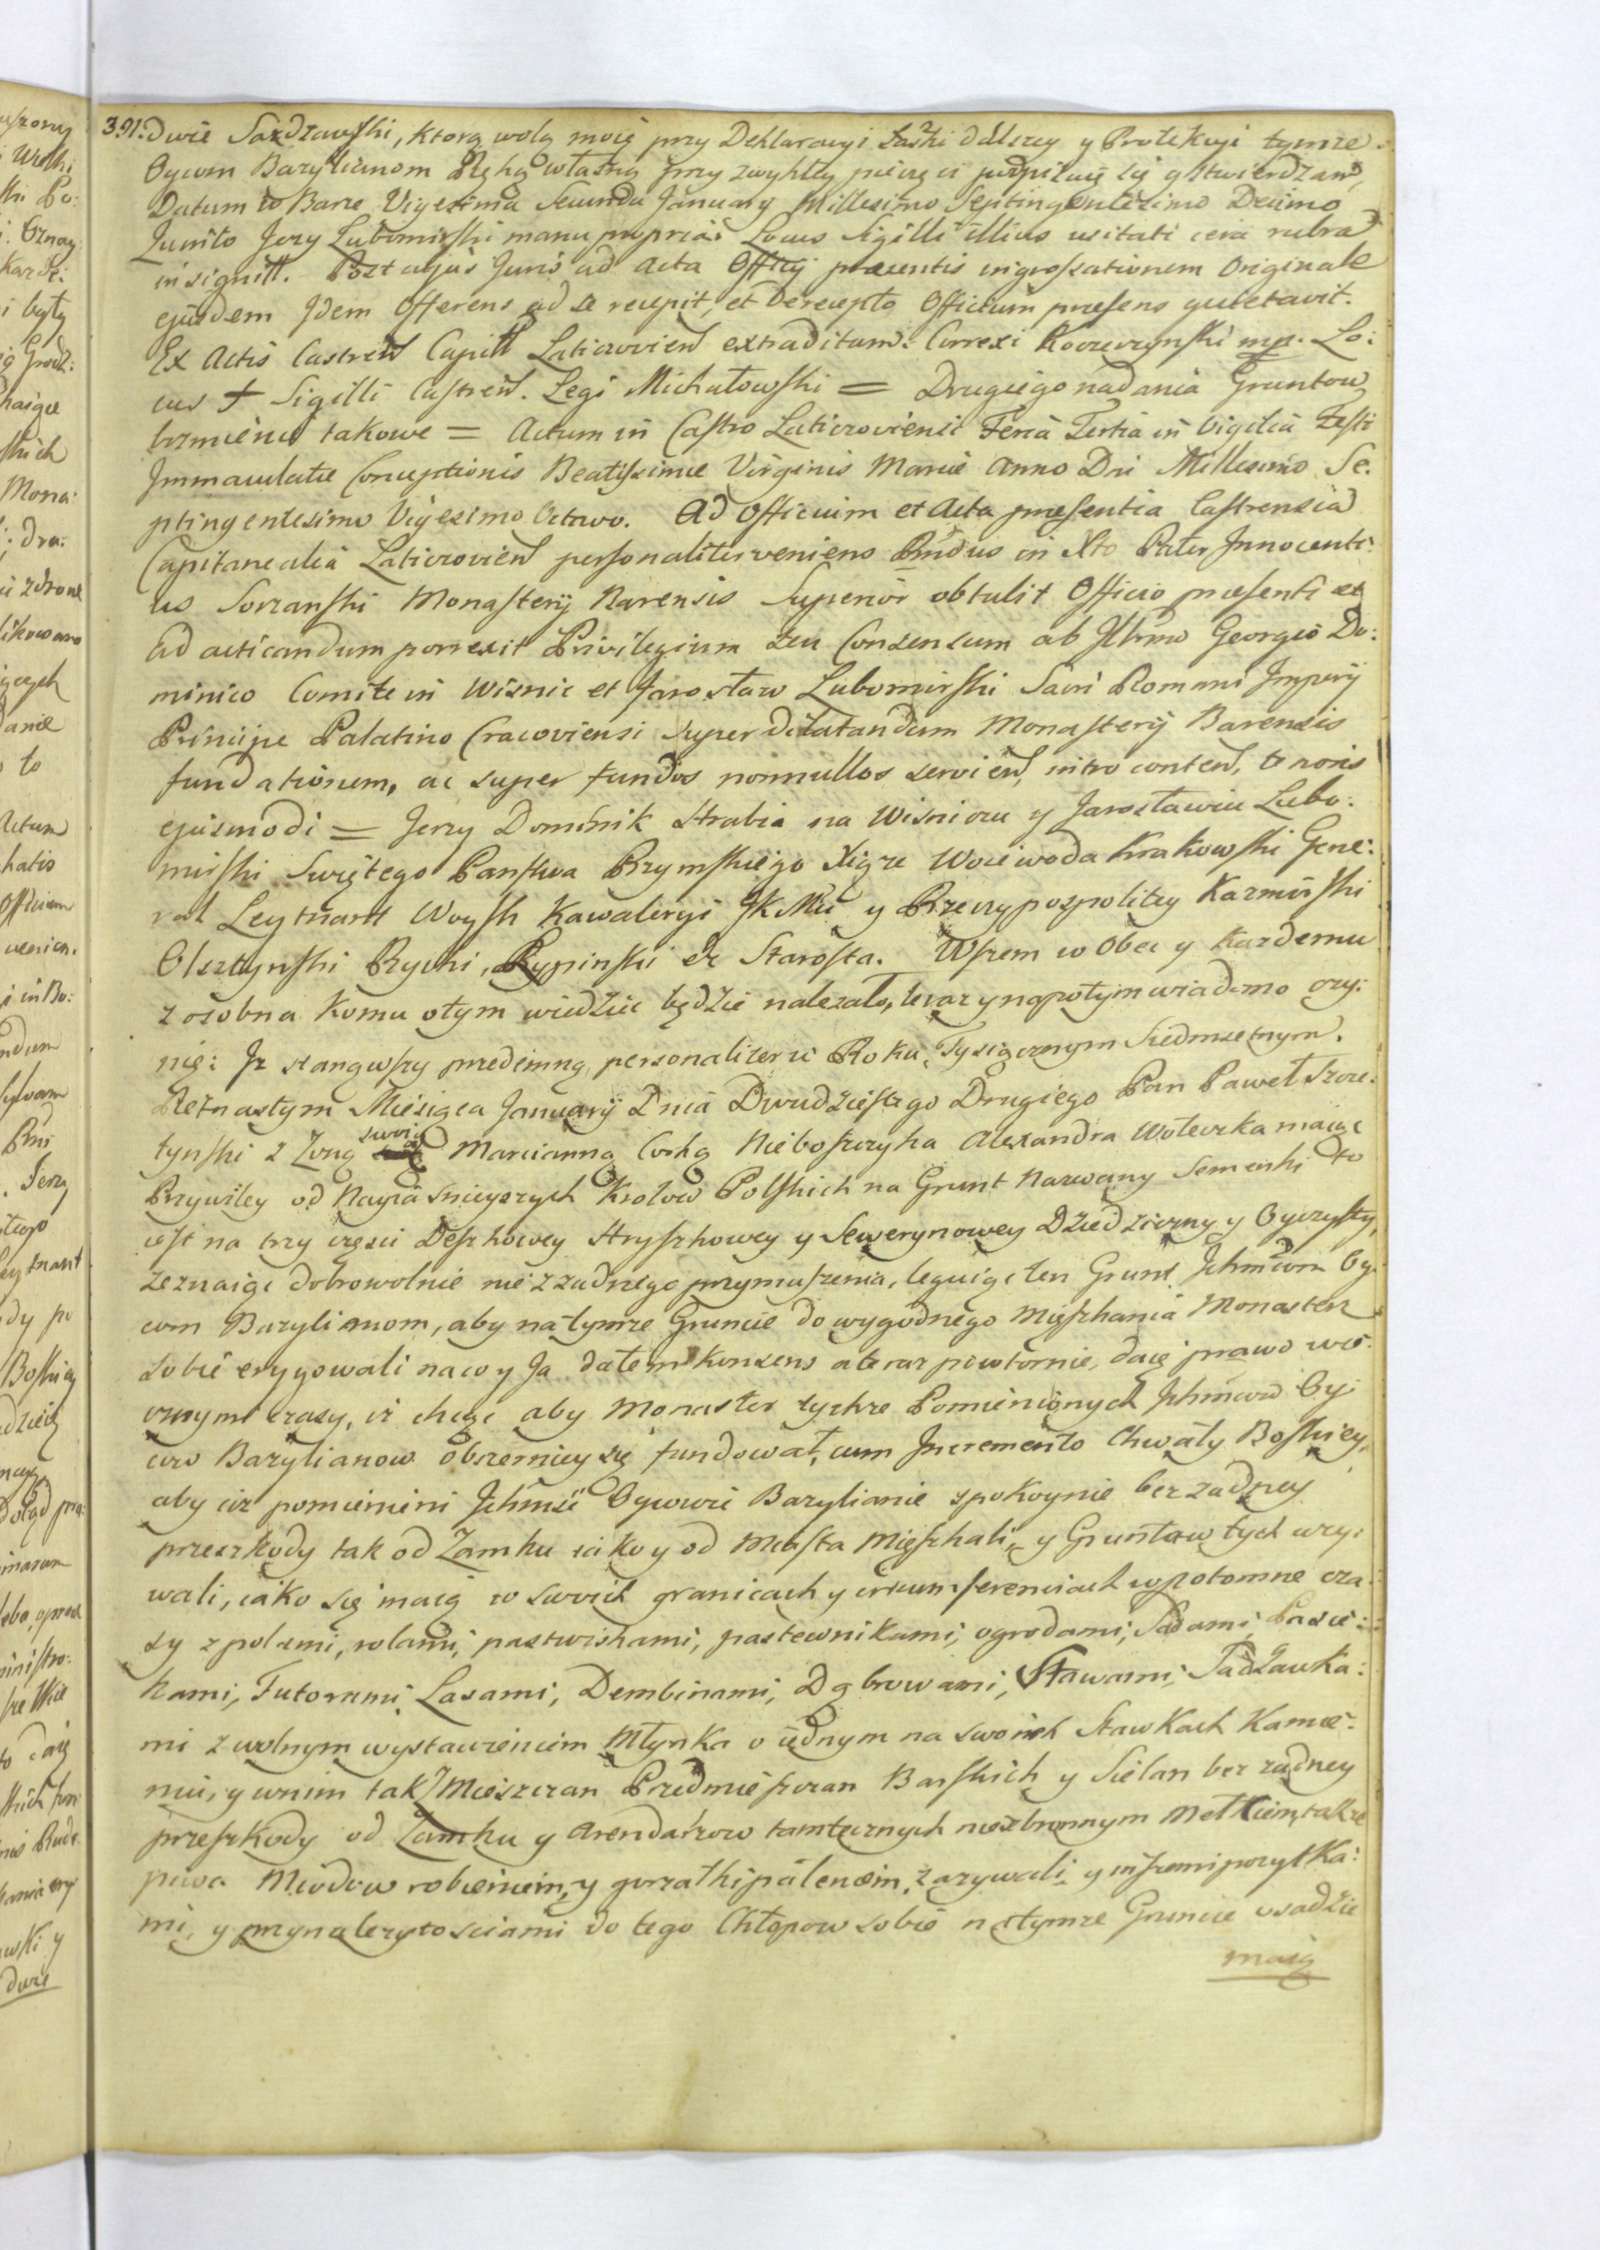 391. dwie Sazdzawski, ktorą wolą moię przy Deklaracyi Łaski dalszey y Protekcyi tymze
Oycom Bazylianom Ręką własną przy zwykłey pieczęci podpisuię się y stwierdzam
Datum w Barze Vigesima Secunda January Millesimo Septingentesimo Decimo
Quinto Jerzy Lubomirski manu propria. Locus Sigilli illius usitati cera rubra
insignitt. Post cujus Juris ad Acta Officij praesentis ingrossationem Originale
ejusdem Jdem Offerens ad se recepit, et de recepto Officium praesens quietavit.
Ex Actis Castren Capitt Laticzovien extraditum. Correxi Koczerzynski mp. Lo:
cus † Sigilli Castren. Legi Michałowski = Drugiego nadania Gruntow
brzmienie takowe = Actum in Castro Laticzoviensi Feria Tertia in Vigilia Festi
Immaculatae Conceptionis Beatissimae Virginis Mariae Anno Dni Millesimo Se:
ptingentesimo Vigesimo Octavo. Ad Officium et Acta praesentia Castrensia
Capitanealia Laticzovien personaliter veniens Rndus in Xto Pater Innocenti:
us Sorzanski Monasterij Barensis Superior obtulit Officio praesenti et
ad acticandum porrexit Privilegium seu Consensum ab Illmo Georgio Do:
minico Comite in Wisnic et Jarosław Lubomirski Sacri Romani Imperij
Principe Palatino Cracoviensi super dilatandam Monasterij Barensis
fundationem, ac super fundos nonnullos servien, intro conten, tenoris
ejusmodi = Jerzy Dominik Hrabia na Wisniczu y Jarosławiu Lubo:
mirski Swiętego Panstwa Rzymskiego Xiąze Woiewoda Krakowski Gene:
rał Leytnant Woysk Kawaleryi JK Mci y Rzeczypospolitey Kazmirski
Olsztynski Rycki, Rypinski &c Starosta. Wszem w Obec y Kazdemu
z osobna Komu o tym wiedziec będzie nalezało, teraz y napotym wiadomo czy:
nię: Jz stanąwszy przedemną personaliter w Roku Tysiącznym Siedmsetnym
Piętnastym Miesiąca January Dnia Dwudziestego Drugiego Pan Paweł Szcze:
tynski z Zoną swoią Marcianną Corką Nieboszczyka Alexandra Wołeczka maiąc
Przywiley od Nayiasnieyszych Krolow Polskich na Grunt Nazwany Semenki to
iest na trzy częsci Deszkowey Hryszkowey y Sewerynowey Dziedziczny y Oyczysty,
zeznaiąc dobrowolnie nie z zadnego przymuszenia, leguiąc ten Grunt Jchmciom Oy:
com Bazylianom, aby na tymze Gruncie do wygodnego Mięszkania Monaster
sobie erygowali na co y Ja dałem konsens a teraz powtornie, daię prawo wie:
cznymi czasy, iz chcąc aby Monaster tychze Pomienionych Jchmciow Oy:
cow Bazylianow obszerniey się fundował, cum Incremento Chwały Boskiey,
aby ciz pomienieni Jchmsc Oycowie Bazylianie spokoynie bez zadney
przeszkody tak od Zamku iako y od Miasta Mięszkali, y Gruntow tych uzy:
wali, iako się maią w swoich granicach y circumferenciach w potomne cza:
sy z polami, rolami, pastwiskami, pastewnikami, ogrodami, Sadami, Pasie:
kami, Futorami, Lasami, Dembinami, Dąbrowami, Stawami, Sadzawka:
mi z wolnym wystawieniem Młynka o iednym na swoich Stawkach Kamie:
niu, y w nim tak Mieszczan Przedmieszczan Barskich y Sielan bez zadney
przeszkody od Zamku y Arendarzow tamtecznych niezbronnym Mełciem, takze
piwa Miodow robieniem, y gorzałki paleniem, zazywali y inszemi pozytka:
mi, y przynalezytosciami do tego Chłopow sobie na tymze Gruncie osadzic
maią